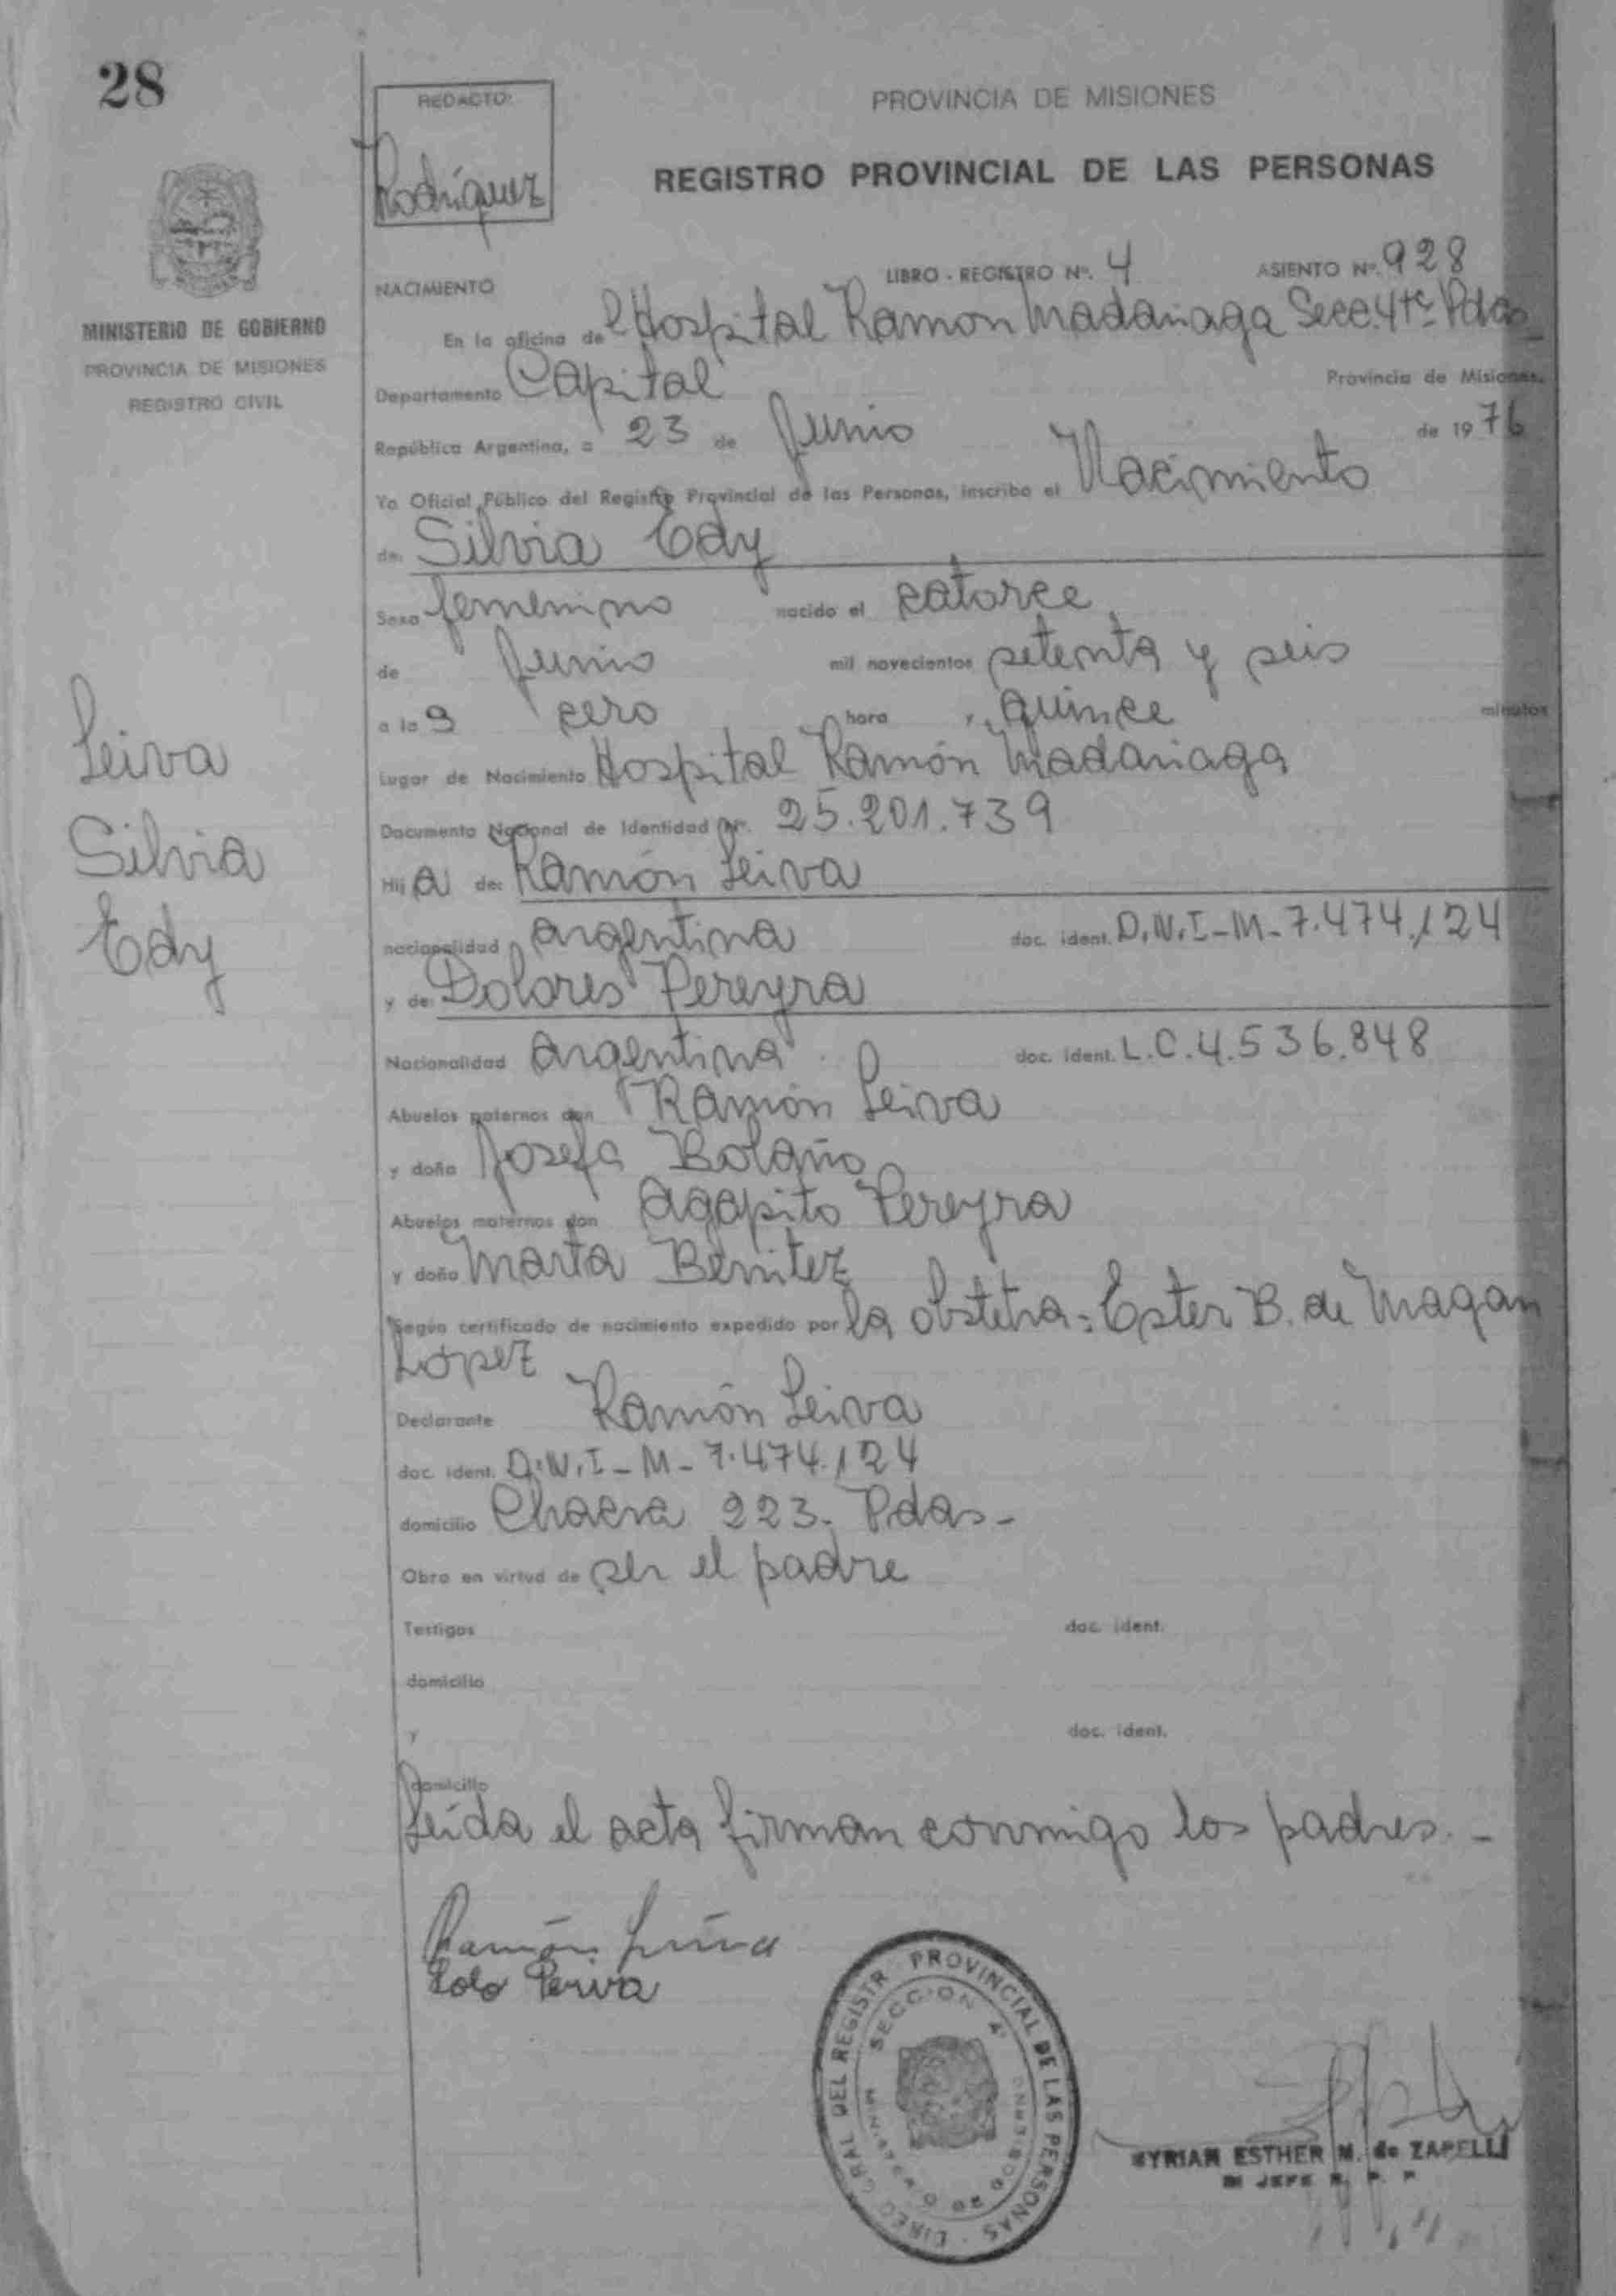 28
REDACTO:
Rodríguez
PROVINCIA DE MISIONES
REGISTRO PROVINCIAL DE LAS PERSONAS
MINISTERIO DE GOBIERNO
PROVINCIA DE MISIONES
REGISTRO CIVIL
NACIMIENTO
LIBRO - REGISTRO Nº. 4 ASIENTO Nº. 928
En la oficina del Hospital Ramon Madariaga Secc. 4ta Pdas
Departamento Capital Provincia de Misiones.
República Argentina, a 23 de Junio de 1976
Yo Oficial Público del Registro Provincial de las Personas, inscribo el Nacimiento
de: Silvia Edy
Sexo femenino nacido el catorce
de Junio mil novecientos setenta y seis
a las cero hora y quince minutos
Lugar de Nacimiento Hospital Ramón Madariaga
Documento Nacional de Identidad Nº. 25.201.739
Hija de: Ramón Leiva
nacionalidad argentina doc. ident. D.N.I-M-7.474.124
y de: Dolores Pereyra
Nacionalidad argentina doc. ident. L.C.4.536.848
Abuelos paternos don Ramón Leiva
y doña Josefa Bolaño
Abuelos maternos don Agapito Pereyra
y doña Marta Benitez
Según certificado de nacimiento expedido por la obstetra: Ester B. de Magan
López
Declarante Ramón Leiva
doc. ident. D.N.I-M-7.474.124
domicilio Chacra 223. Pdas-
Obra en virtud de ser el padre
Testigos doc. ident.
domicilio
y doc. ident.
domicilio
Leída el acta firman conmigo los padres.-
Leiva
Silvia
Edy
Ramón
DIREC. GRAL. DEL REGISTR. PROVINCIAL DE LAS PERSONAS
SECCION 4ª
MYRIAN ESTHER M. de ZAPELLI
JEFE R. P. P